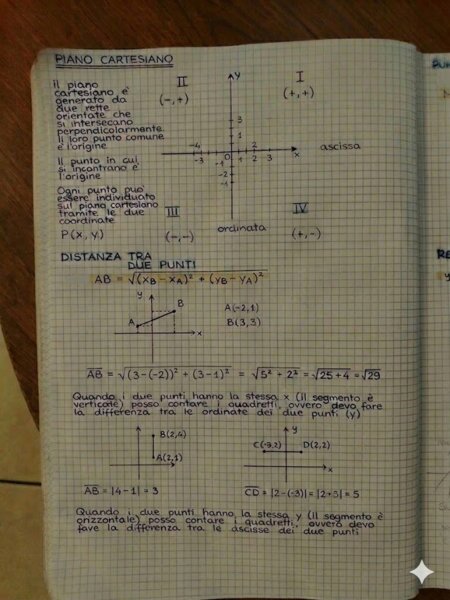 PIANO CARTESIANO
Il piano
cartesiano è
generato da
due rette
orientate che
si intersecano
perpendicolarmente.
Il loro punto comune
è l'origine
Il punto in cui
si incontrano è
l'origine
Ogni punto può
essere individuato
sul piano cartesiano
tramite le due
coordinate
P(x, y)
II
(-,+)
I
(+,+)
y
3
1
-4
2
-3
0
1 2 3
x
-1
-2
-1
ascissa
III
(-,-)
IV
(+,-)
ordinata
DISTANZA TRA
DUE PUNTI
AB = √(xB - xA)² + (yB - yA)²
y
A
B
x
A(-2,1)
B(3,3)
AB = √(3-(-2))² + (3-1)² = √5² + 2² = √25+4 = √29
Quando i due punti hanno la stessa x (il segmento è
verticale) posso contare i quadretti, ovvero devo fare
la differenza tra le ordinate dei due punti (y)
B(2,4)
A(2,1)
y
C(-3,2) D(2,2)
x
AB = |4-1| = 3
CD = |2-(-3)| = |2+3| = 5
Quando i due punti hanno la stessa y (il segmento è
orizzontale) posso contare i quadretti, ovvero devo
fare la differenza tra le ascisse dei due punti
PUN
RE
y